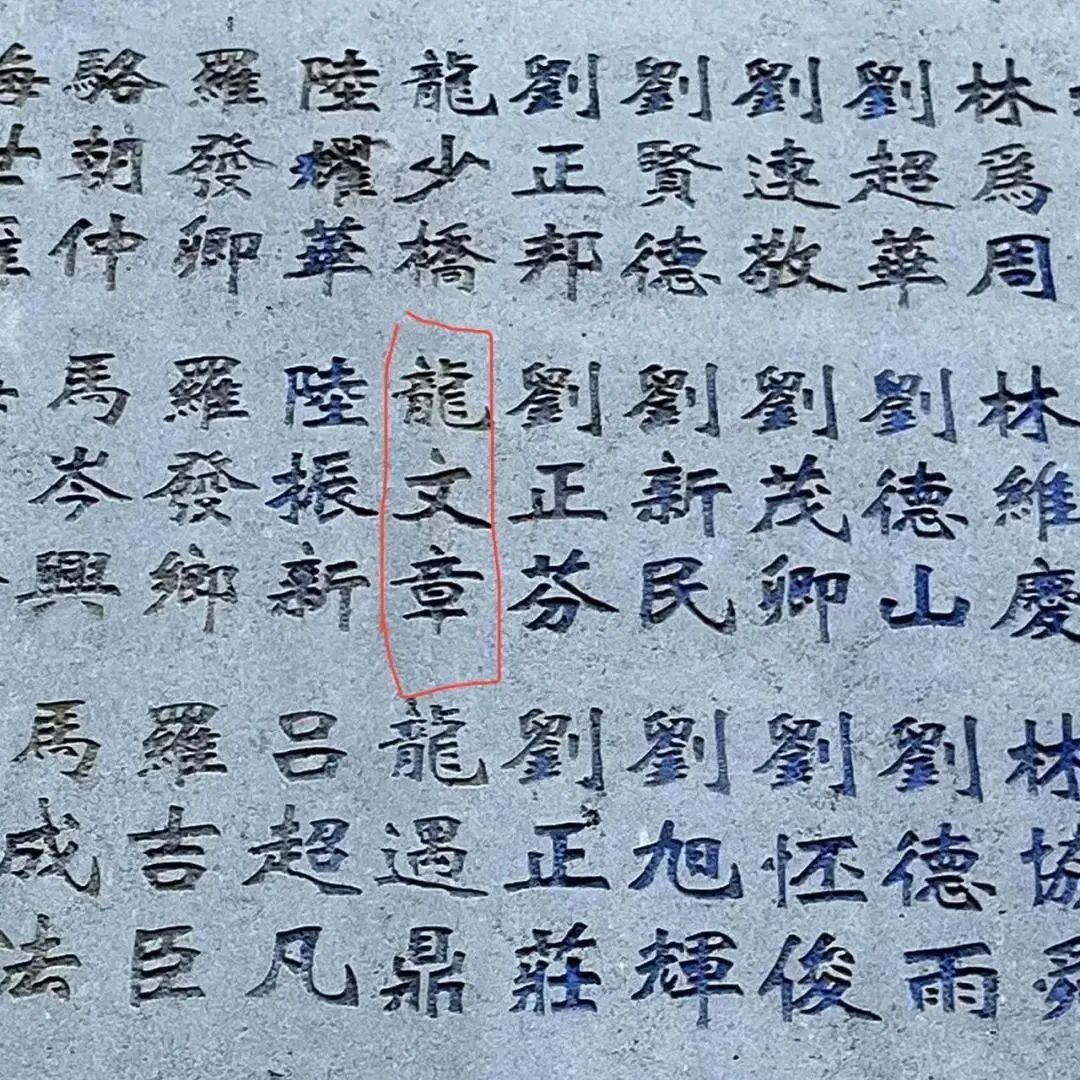 林爲周
劉超華
劉速敬
劉賢德
劉正邦
龍少橋
陸耀華
羅發卿
駱朝仲
林維慶
劉德山
劉茂卿
劉新民
劉正芬
龍文章
陸振新
羅發鄉
馬岑興
林協舜
劉德雨
劉怌俊
劉旭輝
劉正莊
龍遇鼎
呂超凡
羅吉臣
馬成法